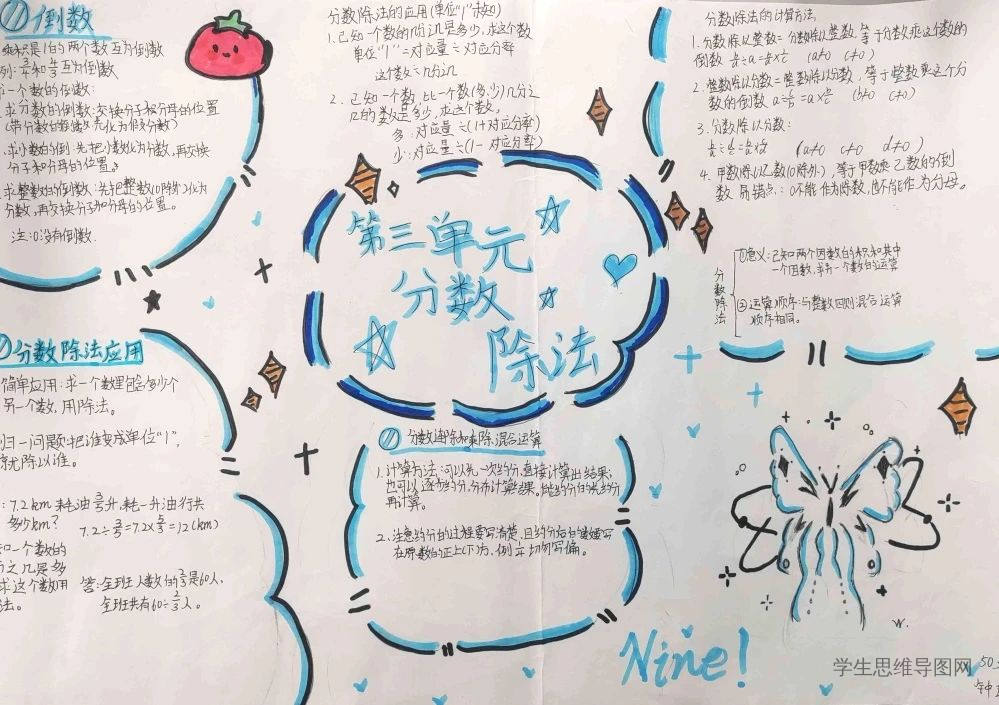 倒数
乘积是1的两个数互为倒数
例:和互为倒数
一个数的倒数:
求分数的倒数:交换分子和分母的位置
(带分数的化为假分数)
求小数的倒:先把小数化为分数,再交换
分子和分母的位置。
求整数的倒数:先把整数(0除外)化为
分数,再交换分子和分母的位置。
注:0没有倒数.
分数除法应用
简单应用:求一个数里包含多少个
另一个数,用除法。
归一问题:把谁变成单位“1”,
就除以谁。
:7.2km耗油3/5升,耗一升油行共
多少km?
7.2÷3/5=7.2×5/3=12(km)
知一个数的
之几是多
求这个数用
法。
答:全班人数的2/3是60人,
全班共有60÷2/3人。
分数除法的应用(单位“1”未知)
1.已知一个数的几分几是多少,求这个数
单位“1”=对应量÷对应分率
这个数=几分几
2.已知一个数,比一个数(多、少)几分之
几的数是多少,求这个数。
多:对应量÷(1+对应分率)
少:对应量÷(1-对应分率)
第三单元
分数
除法
分数连除和乘除混合运算
1.计算方法:可以先一次约分,直接计算出结果;
也可以逐步约分,分布计算结果。能约分的先约分
再计算。
2、注意约分的过程要写清楚,且约分后的数要写
在原数的正上(下)方,切勿写偏。
分数除法的计算方法
1.分数除以整数=分数除以整数,等于分数乘这个数的
倒数 b/a÷c=b/a×1/c (a≠0 c≠0)
2.整数除以分数=整数除以分数,等于整数乘这个分
数的倒数 a÷c/b=a×b/c (b≠0 c≠0)
3.分数除以分数:
(a≠0 c≠0 d≠0)
4.甲数除以乙数(0除外),等于甲数乘乙数的倒
数 易错点:0不能作为除数,也不能作为分母。
分数除法
①意义:已知两个因数的积和其中
一个因数,求另一个数的运算
②运算顺序:与整数四则混合运算
顺序相同。
w.
Nine!
学生思维导图网
50